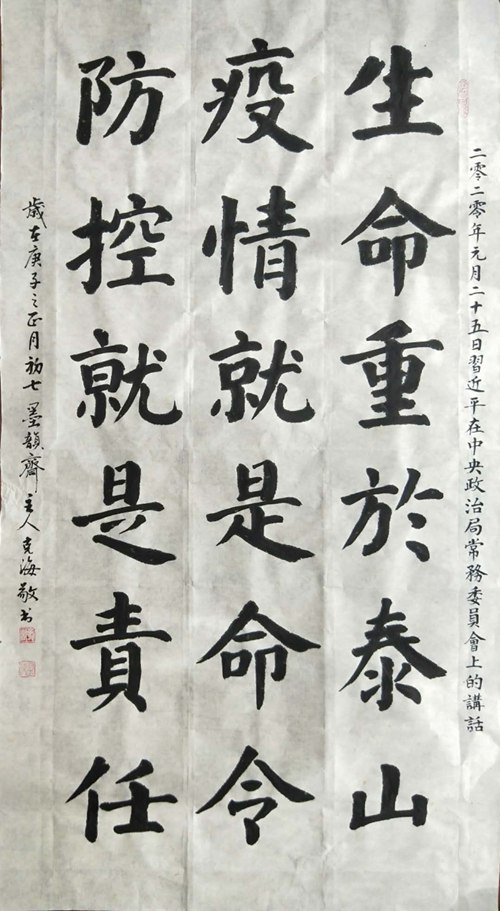 二零二零年元月二十五日習近平在中央政治局常務委員會上的講話
生命重於泰山
疫情就是命令
防控就是責任
歲在庚子之正月初七墨韻齋主人克海敬书